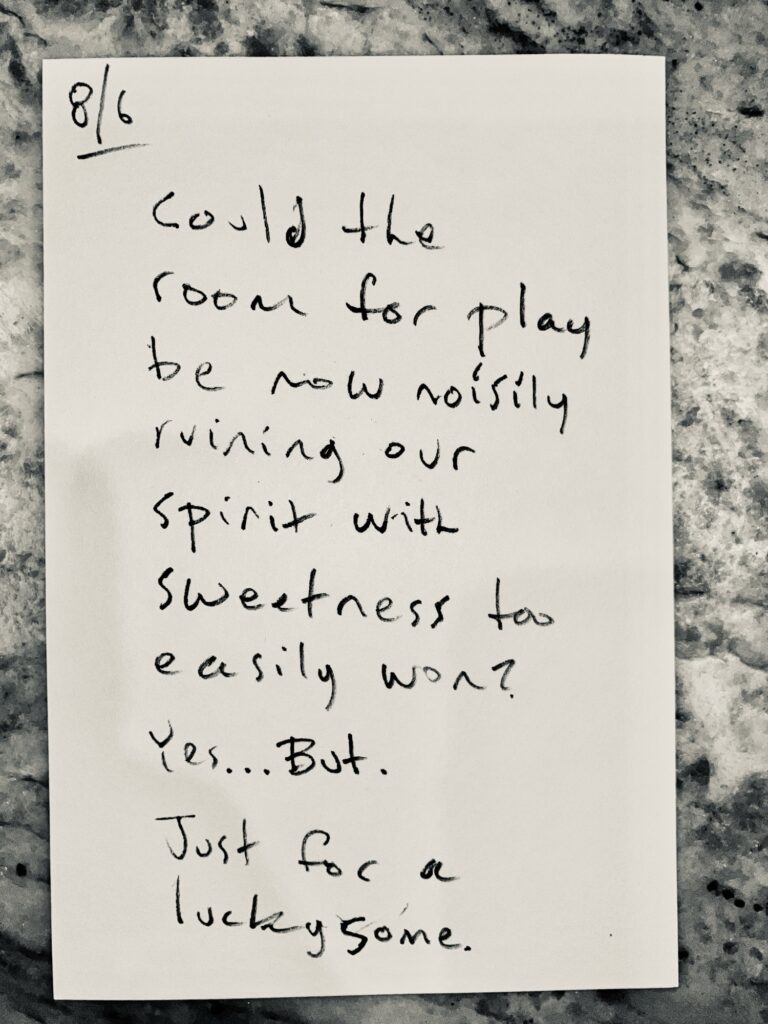 8/6
Could the
room for play
be now noisily
ruining our
spirit with
sweetness too
easily won?
Yes...But.
Just for a
lucky some.